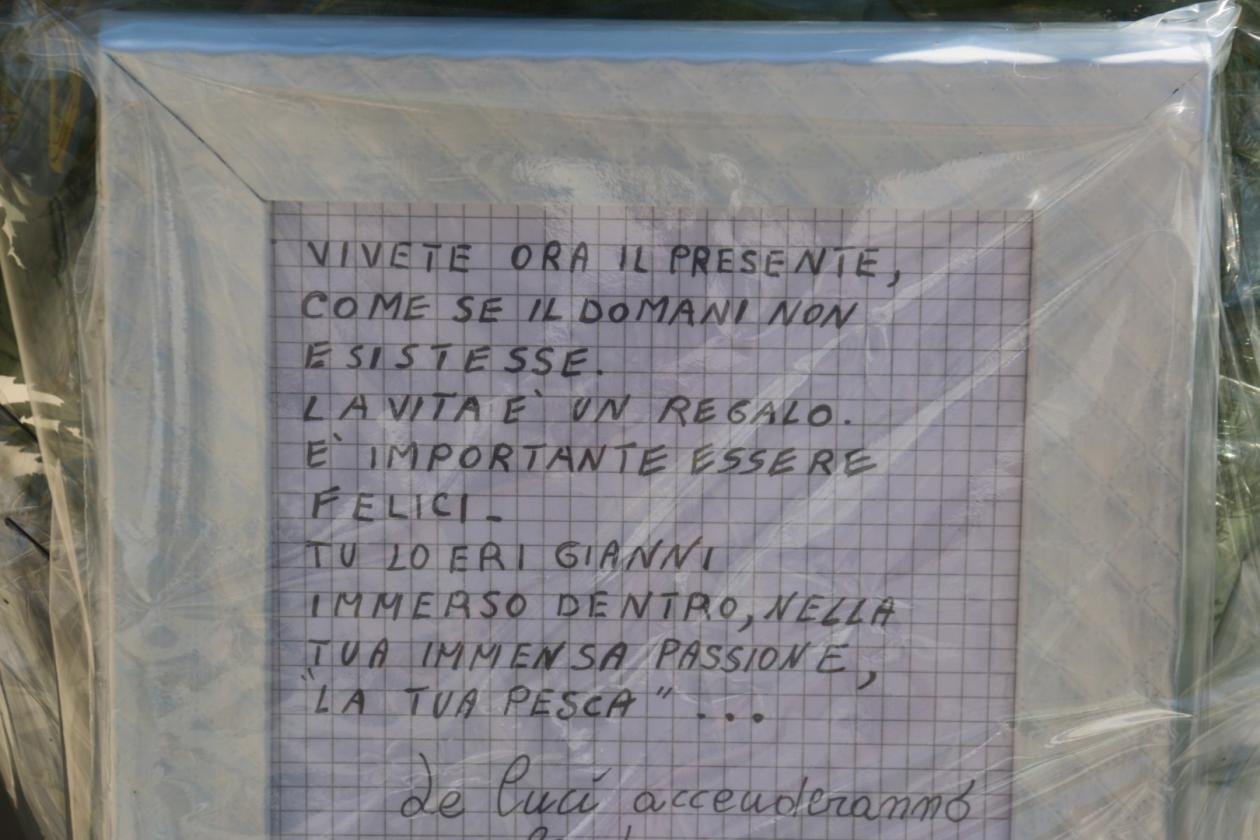 VIVETE ORA IL PRESENTE,
COME SE IL DOMANI NON
ESISTESSE.
LA VITA E` UN REGALO.
E` IMPORTANTE ESSERE
FELICI_
TU LO ERI GIANNI
IMMERSO DENTRO, NELLA
TUA IMMENSA PASSIONE,
"LA TUA PESCA"...
le luci accenderanno